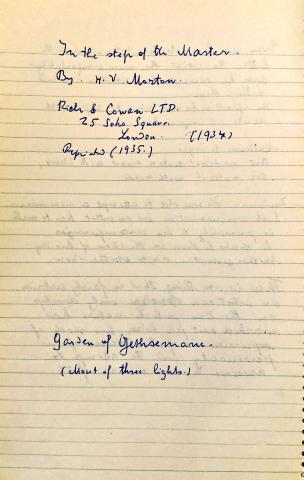 In the step of the Master.
By. H. V. Morton.
Rich & Cowan LTD.
25 Soho Square.
London. (1934)
Reprinted (1935.)
Garden of Gethsemane.
(Mout of three lights.)